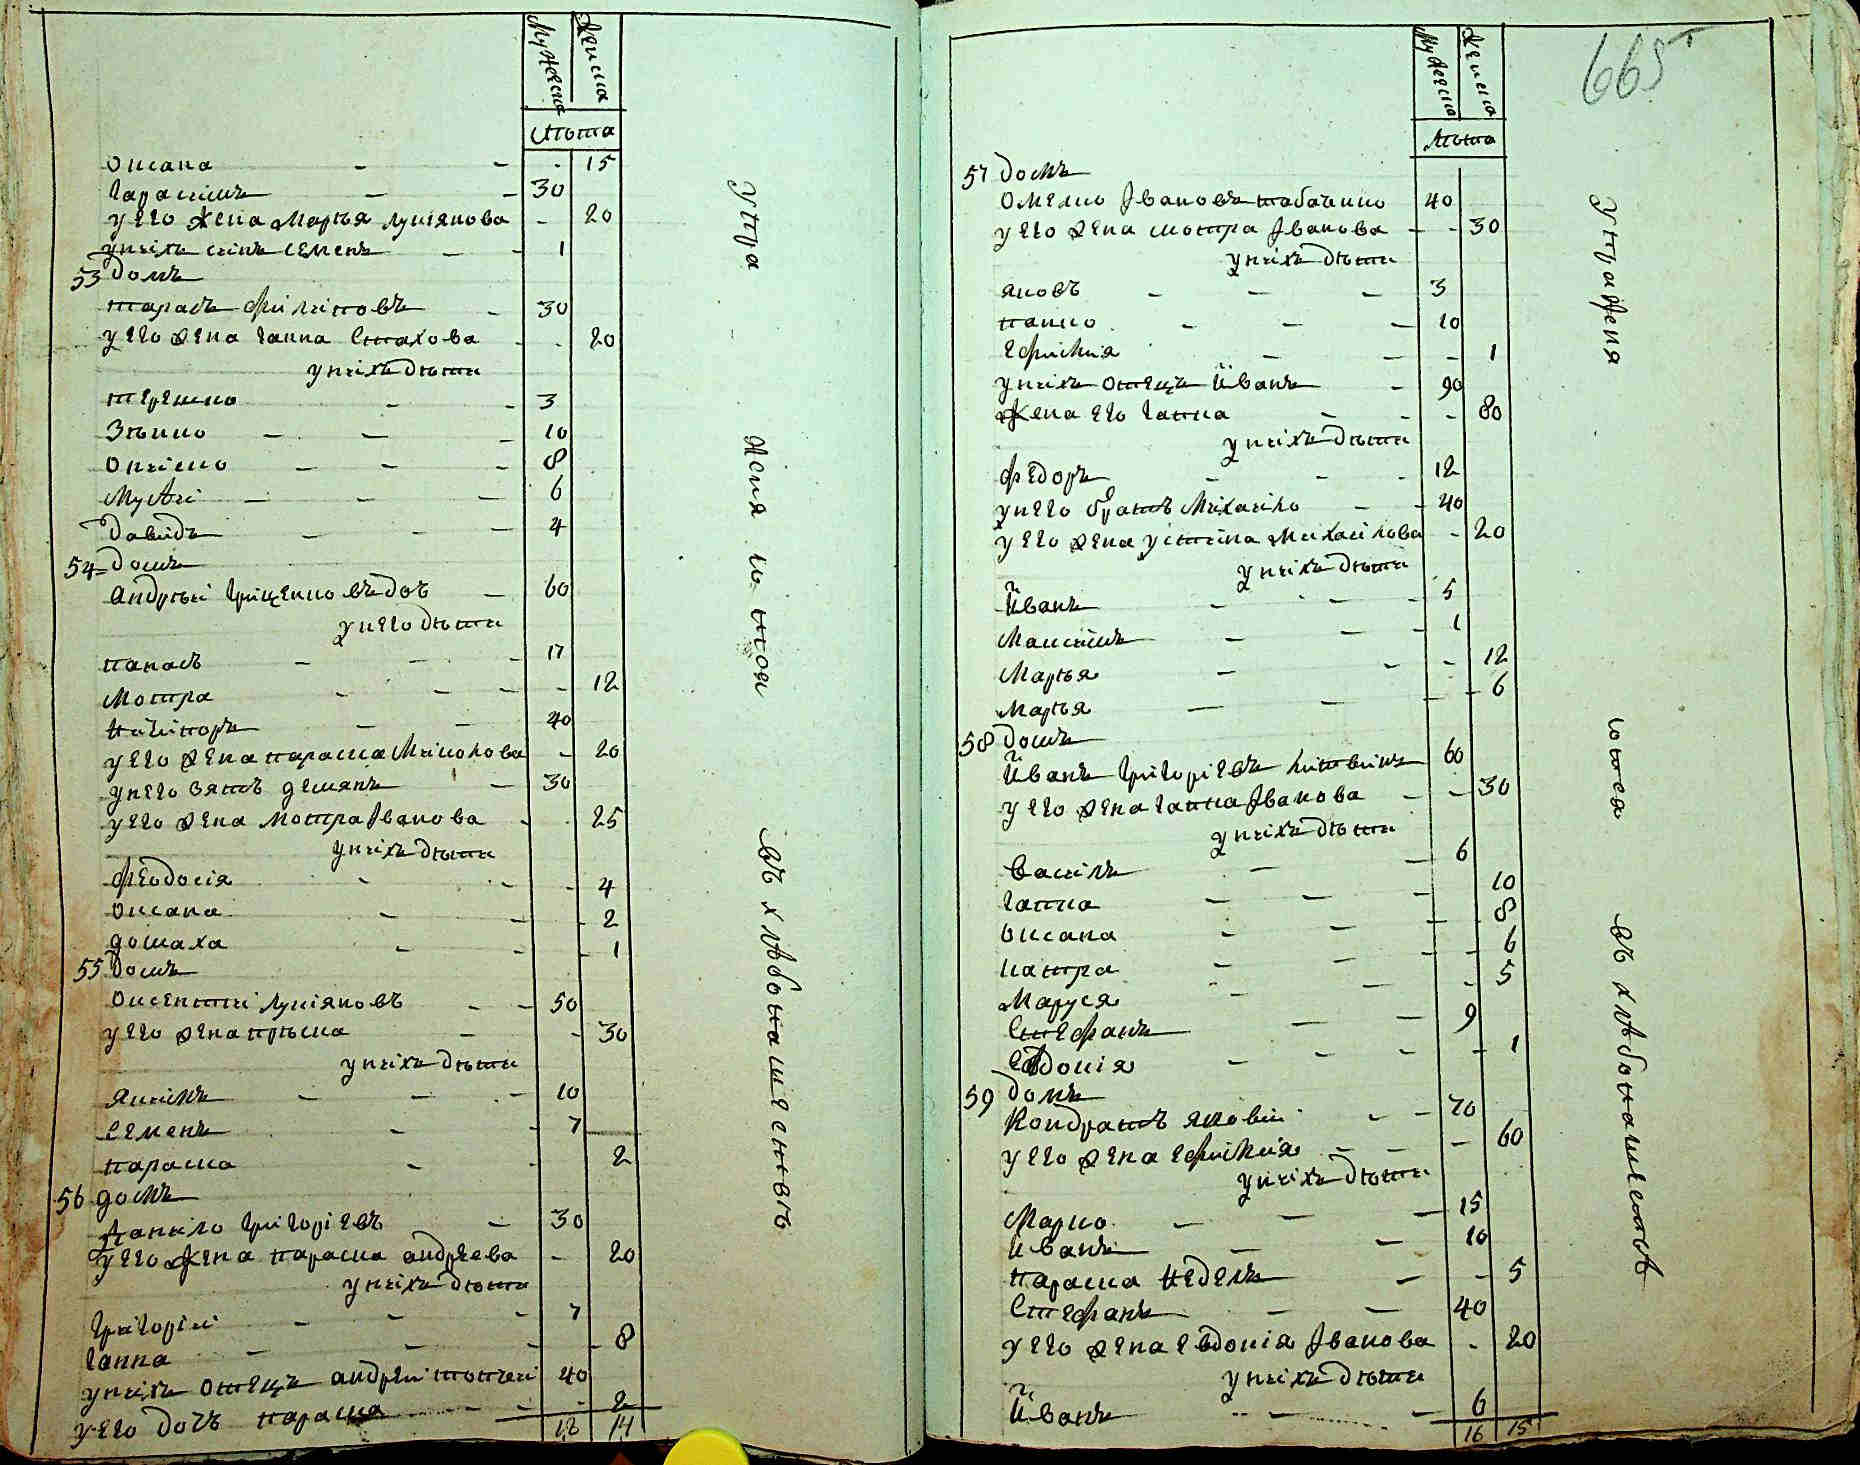 Мужеска Женска
лѣта
Оксана - - - 15
Гарасимъ - - 30
у его жена Марья Лукіянова - 20
у нихъ синъ Семенъ - - 1
53 домъ
Тарасъ Филиповъ - 30
у его жена Ганна Стахова - - 20
у нихъ дѣти
Терешко - - 3
Зѣнко - - - 10
Ониско - - - 8
Мусѣй - - - 6
Давидъ - - - 4
54 домъ
Андрѣй Грищенко вѣдовъ - 60
у него дѣти
Панасъ - - - 17
Мотра - - - - 12
Ничипоръ - - 40
у его жена Параска Миколова - 20
у него зять Демянъ - 30
у его жена Мотра Іванова - - 25
у нихъ дѣти
Феодосія - - - 4
Оксана - - - 2
Домаха - - - 1
55 домъ
Оксентій Лукіяновъ - - 50
у его жена Прѣська - - 30
у нихъ дѣти
Якимъ - - - 10
Семенъ - - 7
Параска - - 2
56 домъ
Данило Григоріевъ - 30
у его жена Параска Андреева - 20
у нихъ дѣти
Григорій - - - 7
Ганна - - - - 8
у нихъ отецъ Андрей 40
у его дочъ Параска - - - 2
12 14
Утра
въ хлѣбопашественѣ
665
Мужеска Женска
лѣта
57 домъ
Омелко Івановъ Табачко 40
у его жена Мотра Іванова - - 30
у нихъ дѣти
Яковъ - - - 3
Панко - - - 10
Ефимія - - - 1
у нихъ отецъ Йванъ - 90
жена его Ганна - - - 80
у нихъ дѣти
Федоръ - - - 12
у него братъ Михайло - - 40
у его жена Устина Михайлова - 20
у нихъ дѣти
Йванъ - - - 5
Максимъ - - - 1
Марья - - - 12
Марья - - - - 6
58 домъ
Йванъ Григоріевъ Литвинъ 60
у его жена Ганна Іванова - - 30
у нихъ дѣти
Василь - - 6
Ганна - - - 10
Оксана - - - - 8
Мотра - - - - 6
Маруся - - - 5
Стефанъ - - 9
Евдокія - - - - 1
59 домъ
Кондратъ Яковъ - - 70
у его жена Ефимія - - - 60
у нихъ дѣти
Марко - - - 15
Йванъ - - 10
Параска - - 5
Стефанъ - - 40
у его жена Евдокія Іванова - 20
у нихъ дѣти
Йванъ - - - 6
16 15
въ хлѣбопашестве